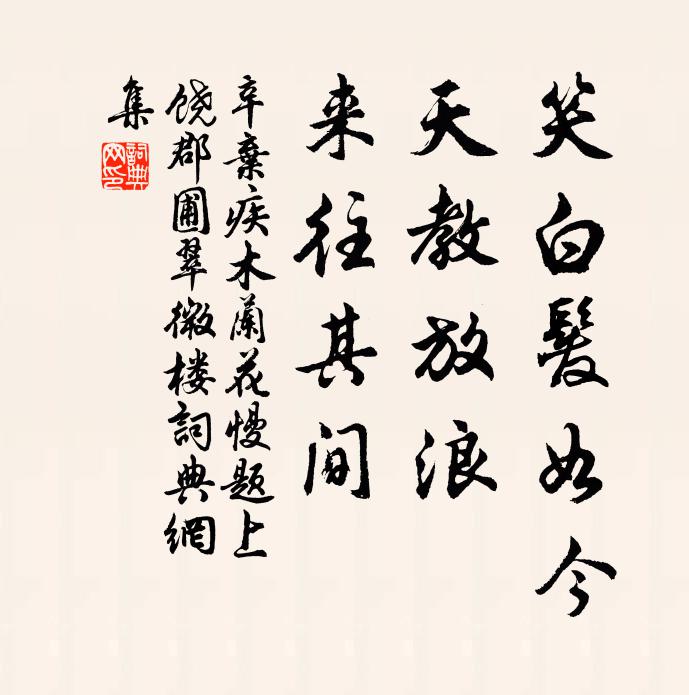 笑白髮如今
天教放浪
来往其间
辛棄疾木蘭花慢题上
饶郡圃翠微楼詞典網
集
詞典網印